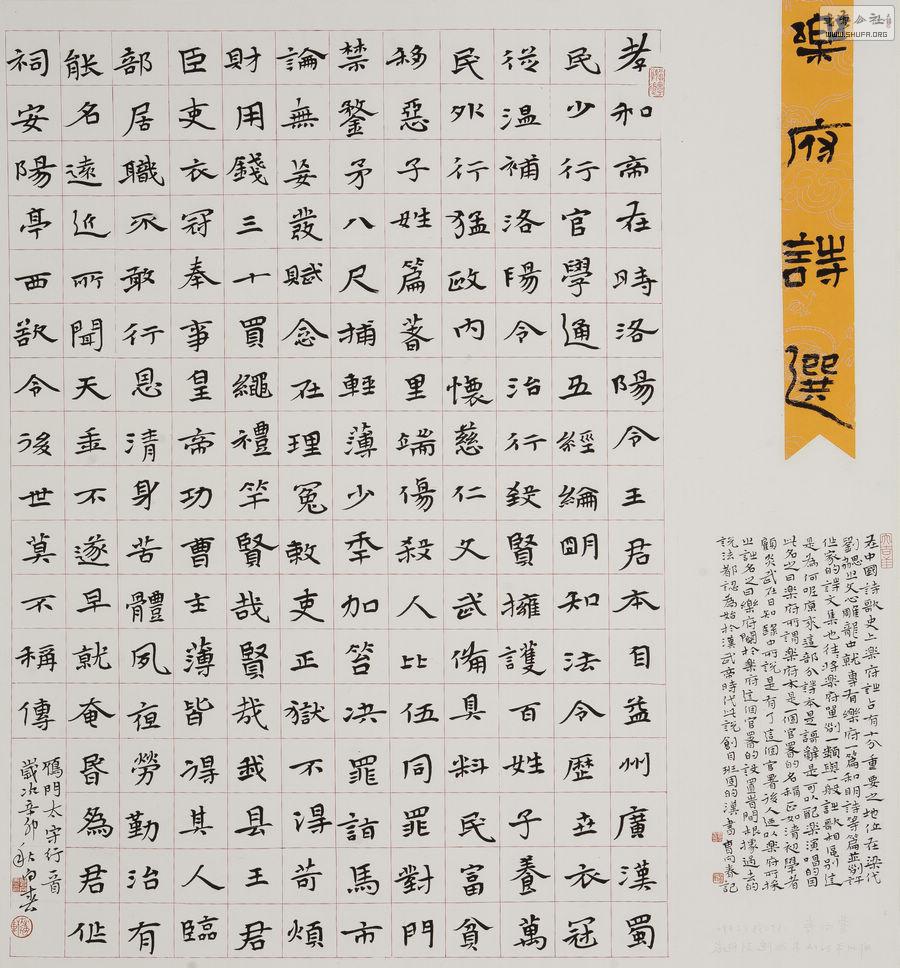 樂府詩選
孝和帝在時洛陽令王君本自益州廣漢蜀
民少行官學通五經綸明知法令歷世衣冠
從溫補洛陽令治行致賢擁護百姓子養萬
民外行猛政內懷慈仁文武備具料民富貧
移惡子姓篇著里端傷殺人比伍同罪對門
禁鍪矛八尺捕輕薄少年加笞決罪詣馬市
論無妄發賦念在理冤敕吏正獄不得苛煩
財用錢三十買繩禮竿賢哉賢哉我县王君
臣吏衣冠奉事皇帝功曹主薄皆得其人臨
部居職不敢行恩清身苦體夙夜勞勤治有
能名遠近所聞天年不遂早就奄昏為君作
祠安陽亭西欲令後世莫不稱傳
鴈門太守行
歲次辛卯秋向春
在中國詩歌史上樂府詩占有十分重要之地位在梁代
劉勰之文心雕龍中就專有樂府一篇和明詩等篇並列許
他家的詩文集也往將樂府單列一類與一般詩歌相區別這
是為何呢原來這部分詩本是辭是可以配樂演唱的因
此名之曰樂府所謂樂府本是一個官署的名稱正如清初學者
顧炎武在日知錄中所說是有了這個官署後人遂以樂府所採
之詩名之曰樂府關於樂府這個官署的設置時間根據過去的
說法都認為始於漢武帝時代此說創自班固的漢書曹向春記
WWW.SHUFA.ORG